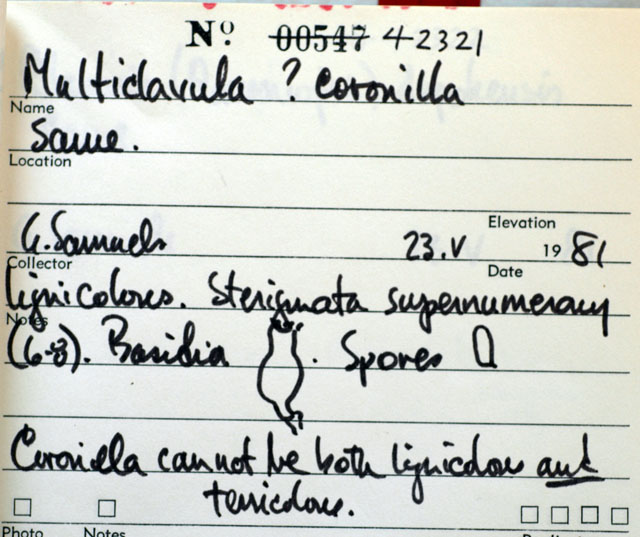 Nº 00547 4-2321
Multiclavula ? coronilla
Name
Same.
Location
Elevation
G. Samuels 23.V 19 81
Collector Date
lignicolous. Sterigmata supernumerary
Notes
(6-8). Basidia . Spores
Coronilla cannot be both lignicolous and
terricolous.
Photo Notes